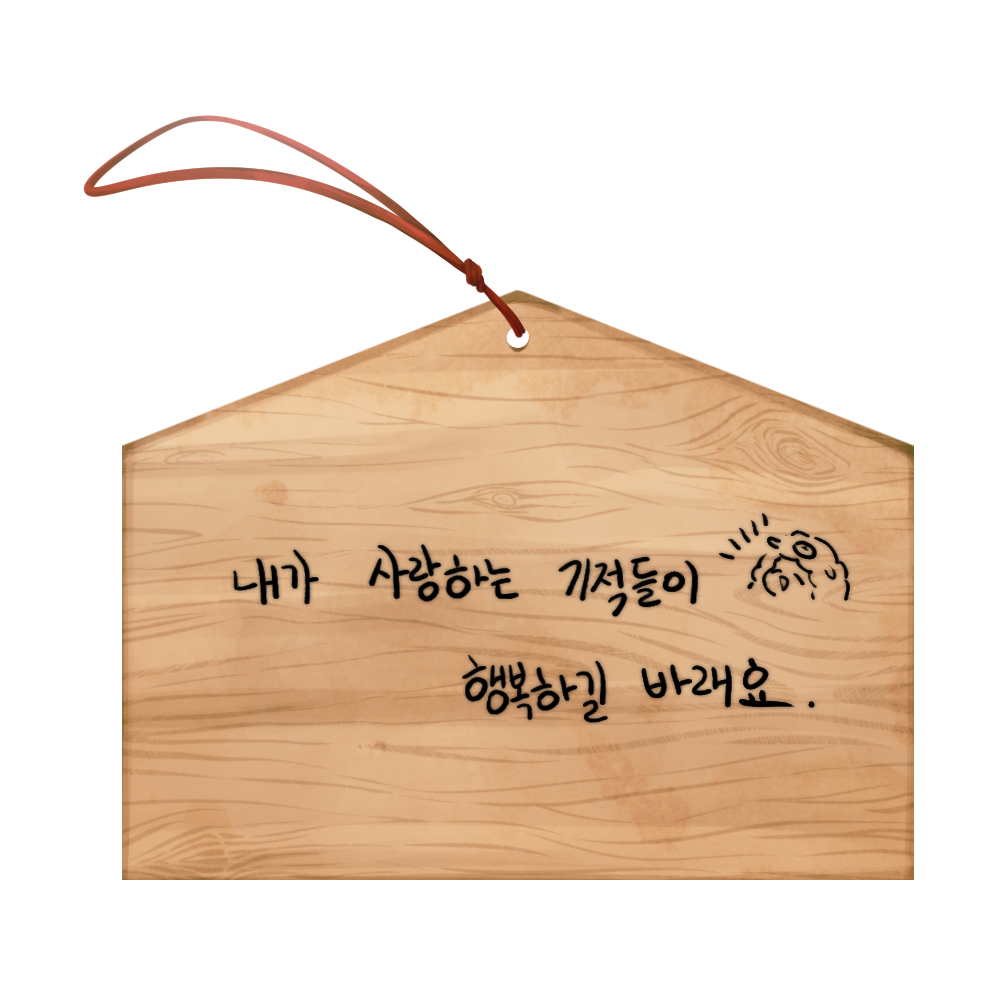 내가 사랑하는 기적들이
행복하길 바래요.